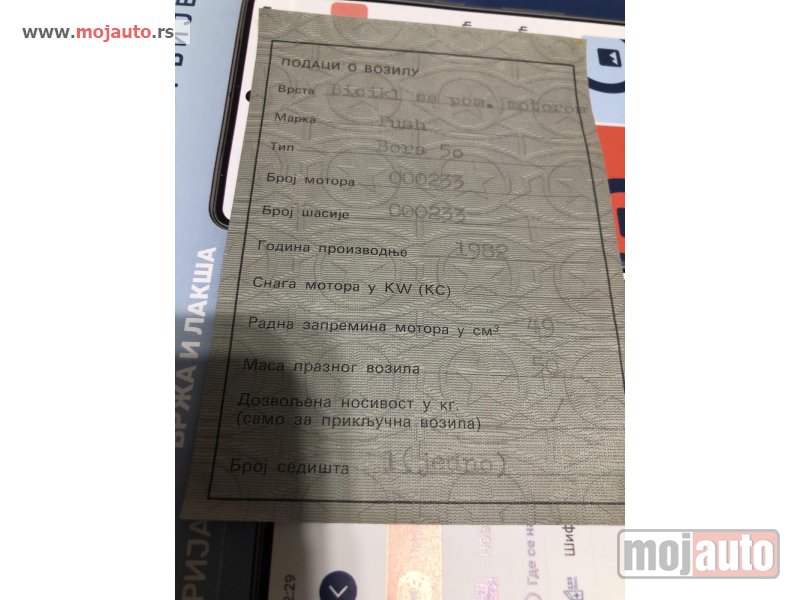 www.mojauto.rs
ПОДАЦИ О ВОЗИЛУ
Врста Bicikl sa pom. motorom
Марка Push
Тип Bora 50
Број мотора 000233
Број шасије 000233
Година производње 1982
Снага мотора у KW (КС)
Радна запремина мотора у см³ 49
Маса празног возила 50
Дозвољена носивост у кг.
(само за прикључна возила)
Број седишта 1(jedno)
БРЖА И ЛАКША
РИЈА
2:29
Где се на
Шиф
mojauto